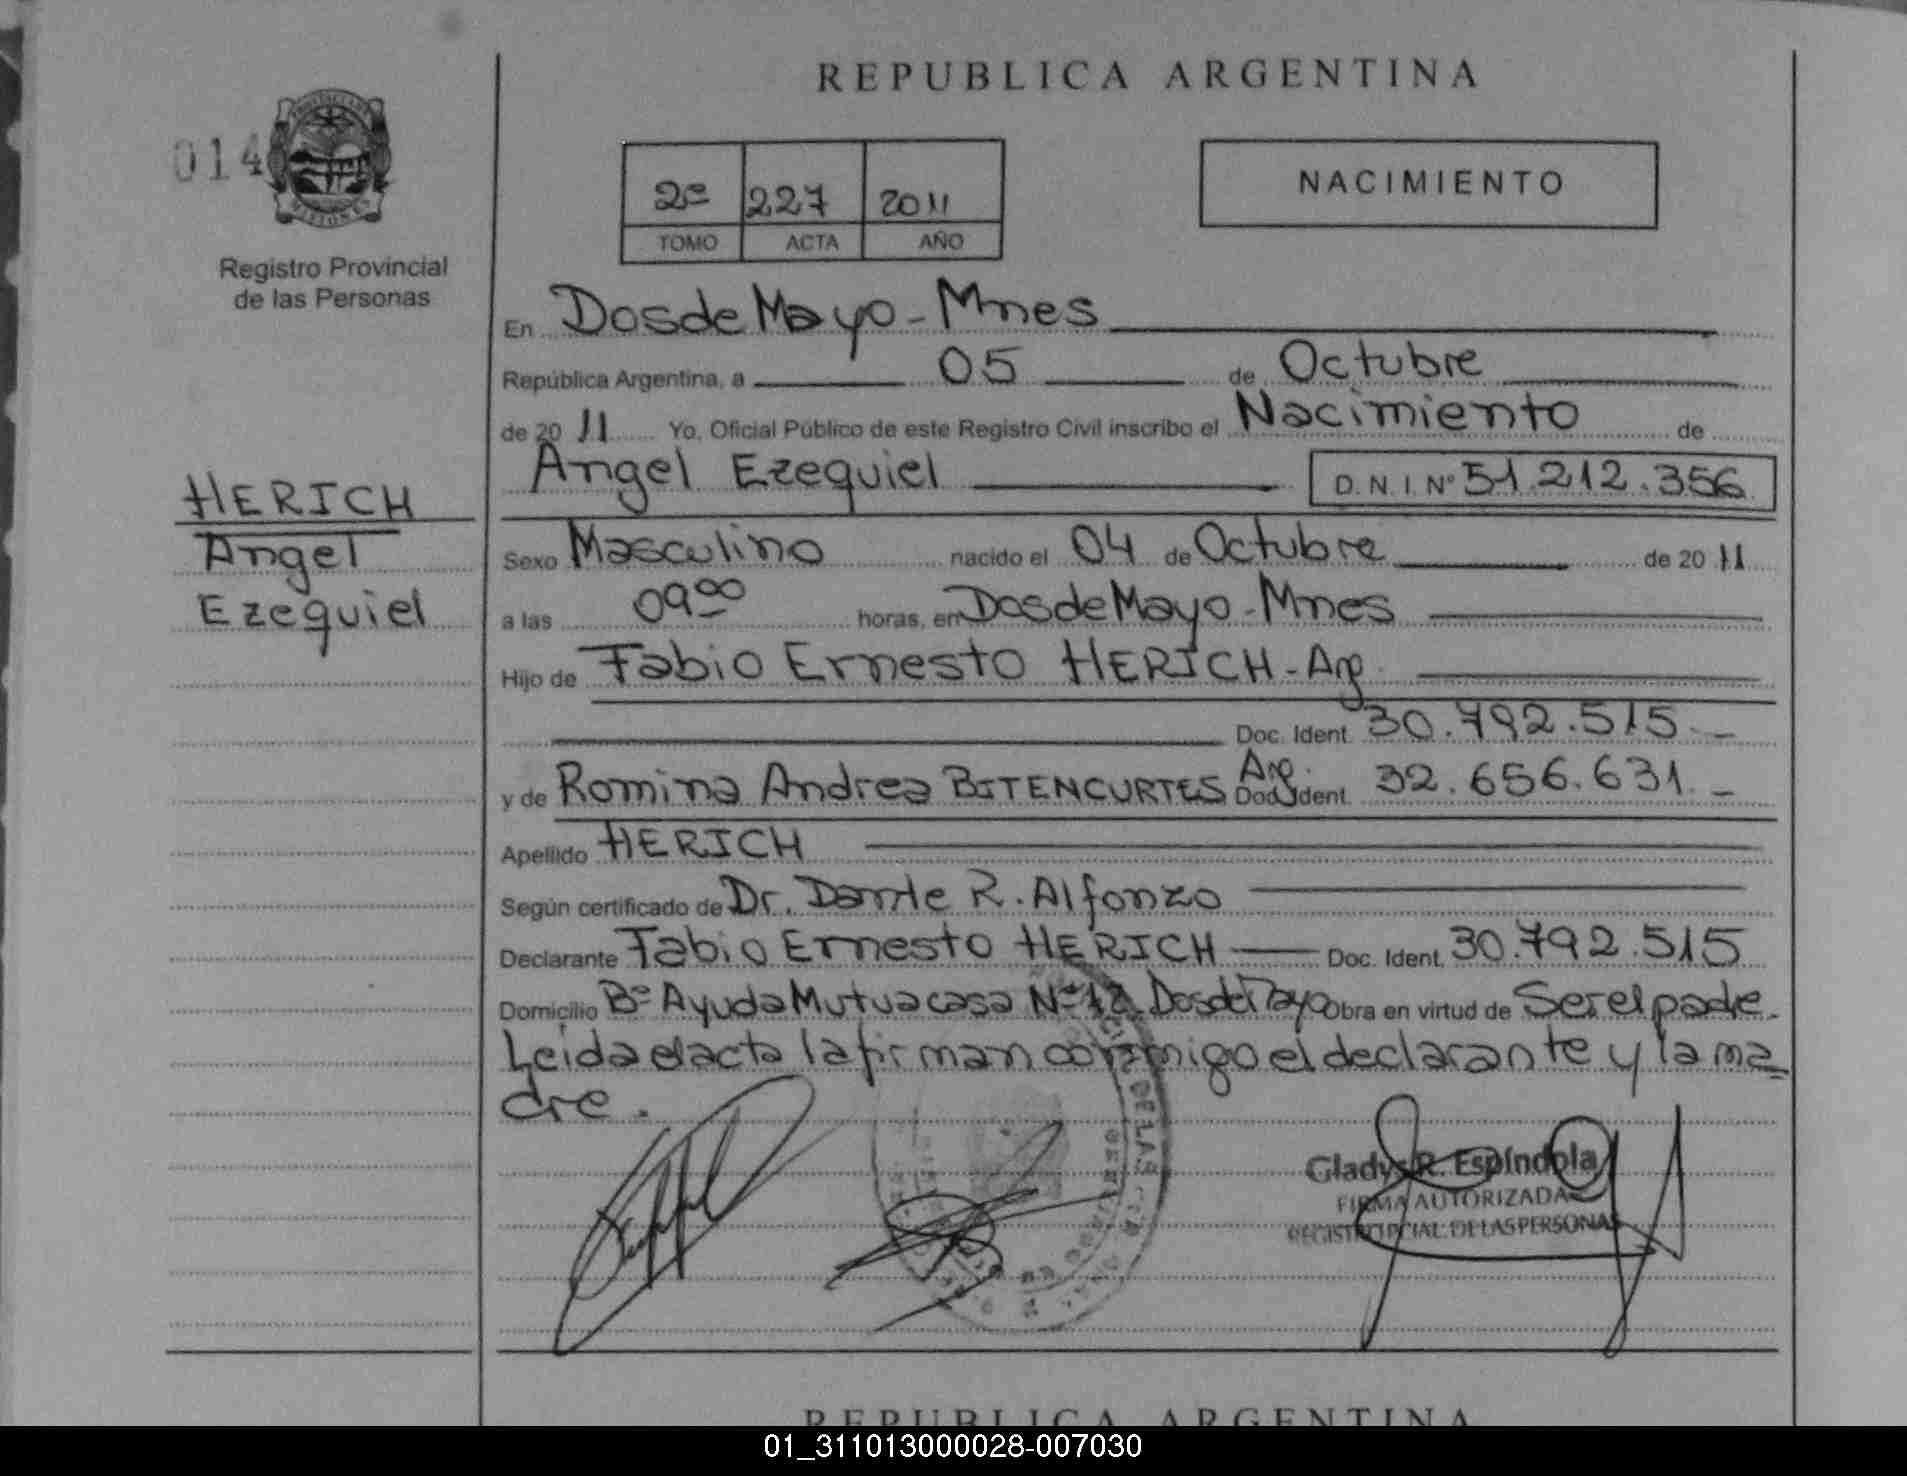 REPUBLICA ARGENTINA
014
NACIMIENTO
2º 227 2011
TOMO ACTA AÑO
Registro Provincial
de las Personas
En Dos de Mayo - Mnes
República Argentina, a 05 de Octubre
de 2011 Yo, Oficial Público de este Registro Civil inscribo el Nacimiento de
Angel Ezequiel D.N.I. Nº 51.212.356
HERICH
Angel
Ezequiel
Sexo Masculino nacido el 04 de Octubre de 2011
a las 09 00 horas, en Dos de Mayo - Mnes
Hijo de Fabio Ernesto HERICH - Arg.
Doc. Ident. 30.792.515.-
y de Romina Andrea BITENCURTES Arg. Doc. Ident. 32.656.631.-
Apellido HERICH
Según certificado de Dr. Dante R. Alfonzo
Declarante Fabio Ernesto HERICH Doc. Ident. 30.792.515
Domicilio Bº Ayuda Mutua casa Nº 12 Dos de Mayo Obra en virtud de Ser el padre.
Leida el acta la firman conmigo el declarante y la ma-
dre.
Gladys R. Espíndola
FIRMA AUTORIZADA
REGISTRO PCIAL. DE LAS PERSONAS
REPUBLICA ARGENTINA
01_311013000028-007030